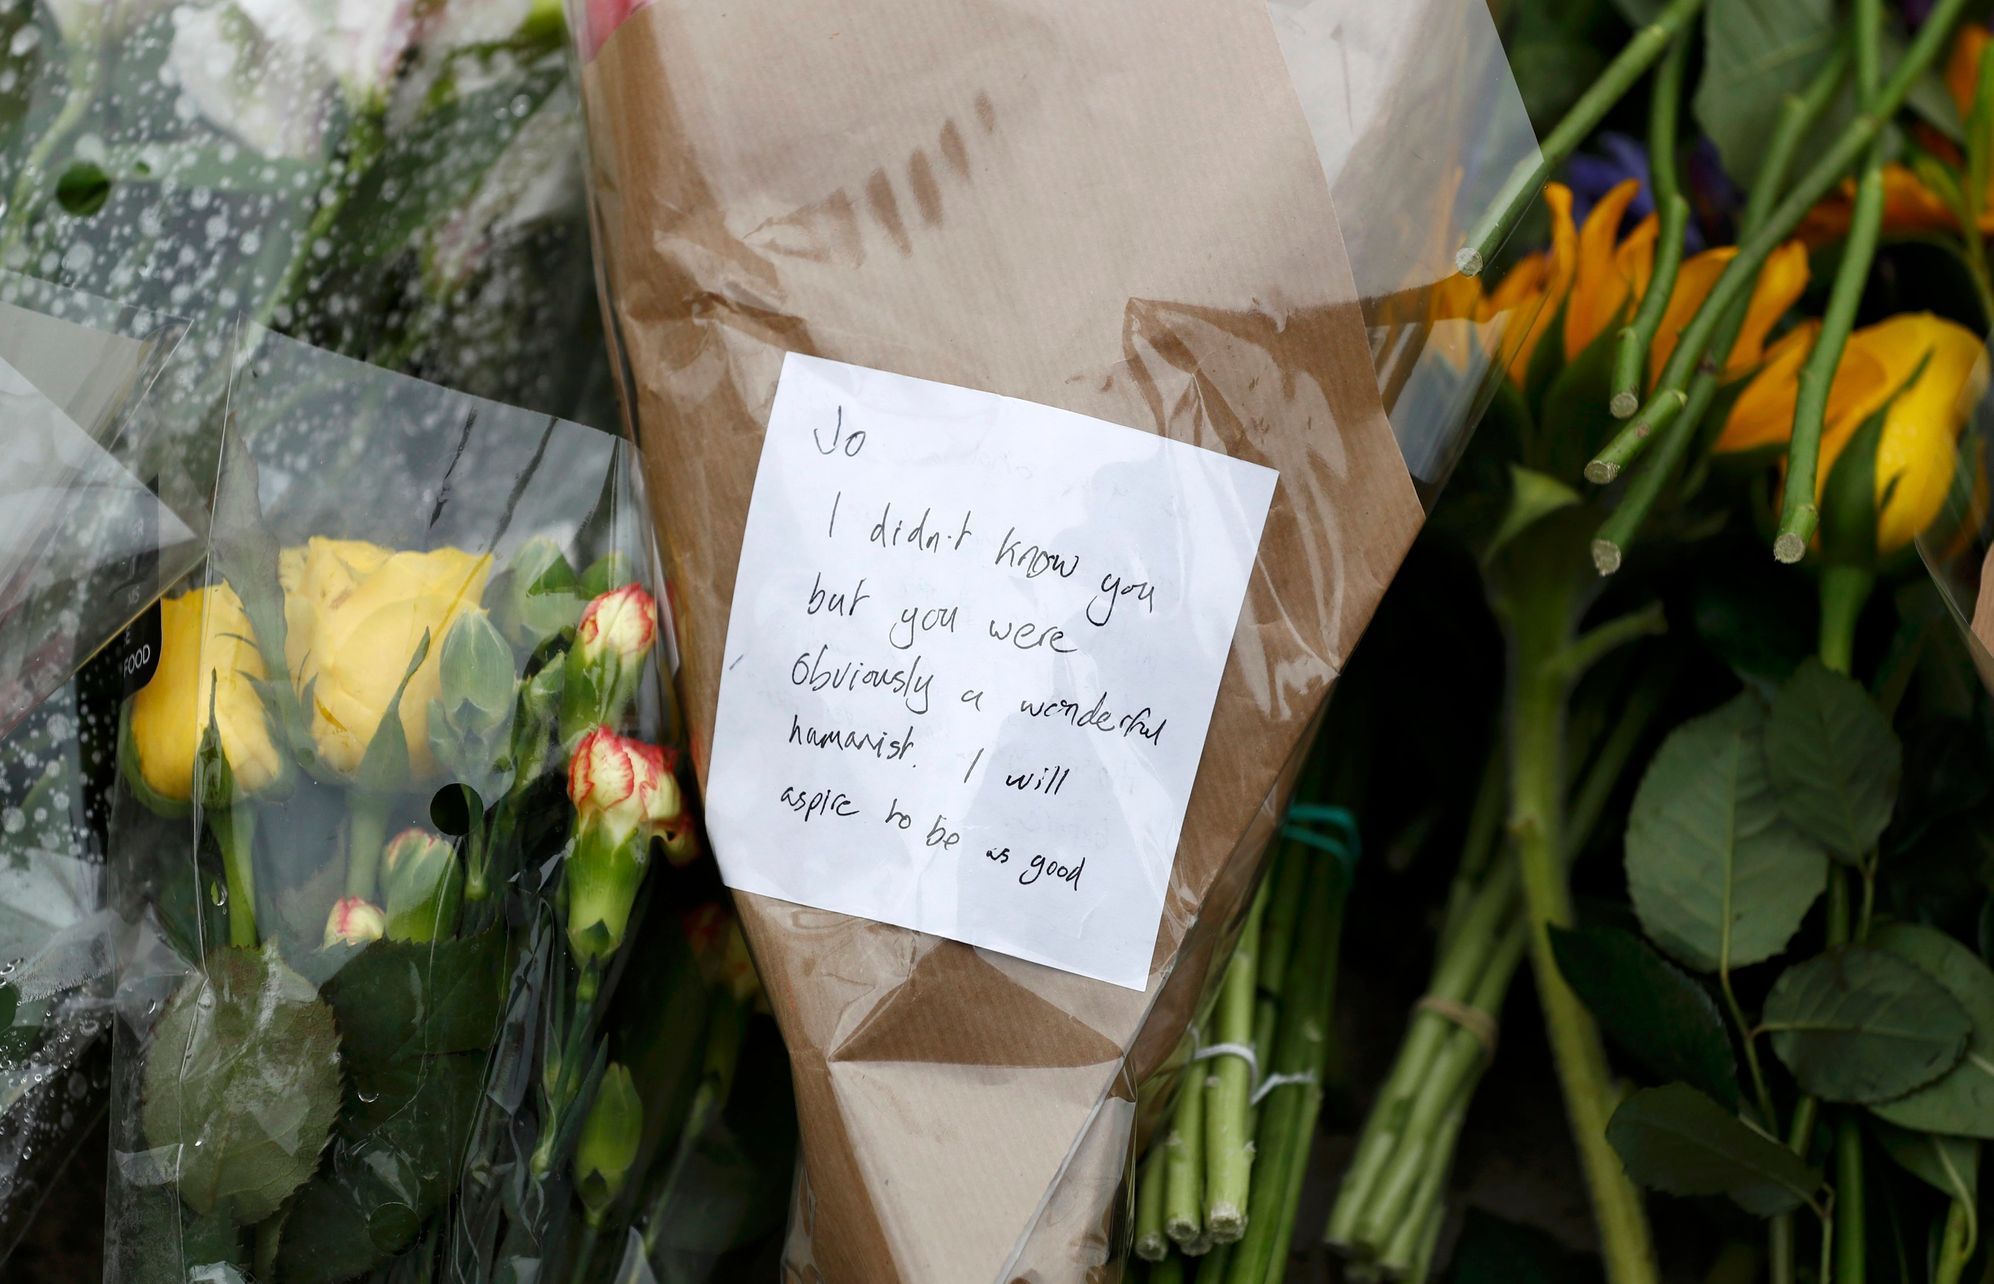 Jo
I didn't know you
but you were
obviously a wonderful
humanist. I will
aspire to be as good
FOOD